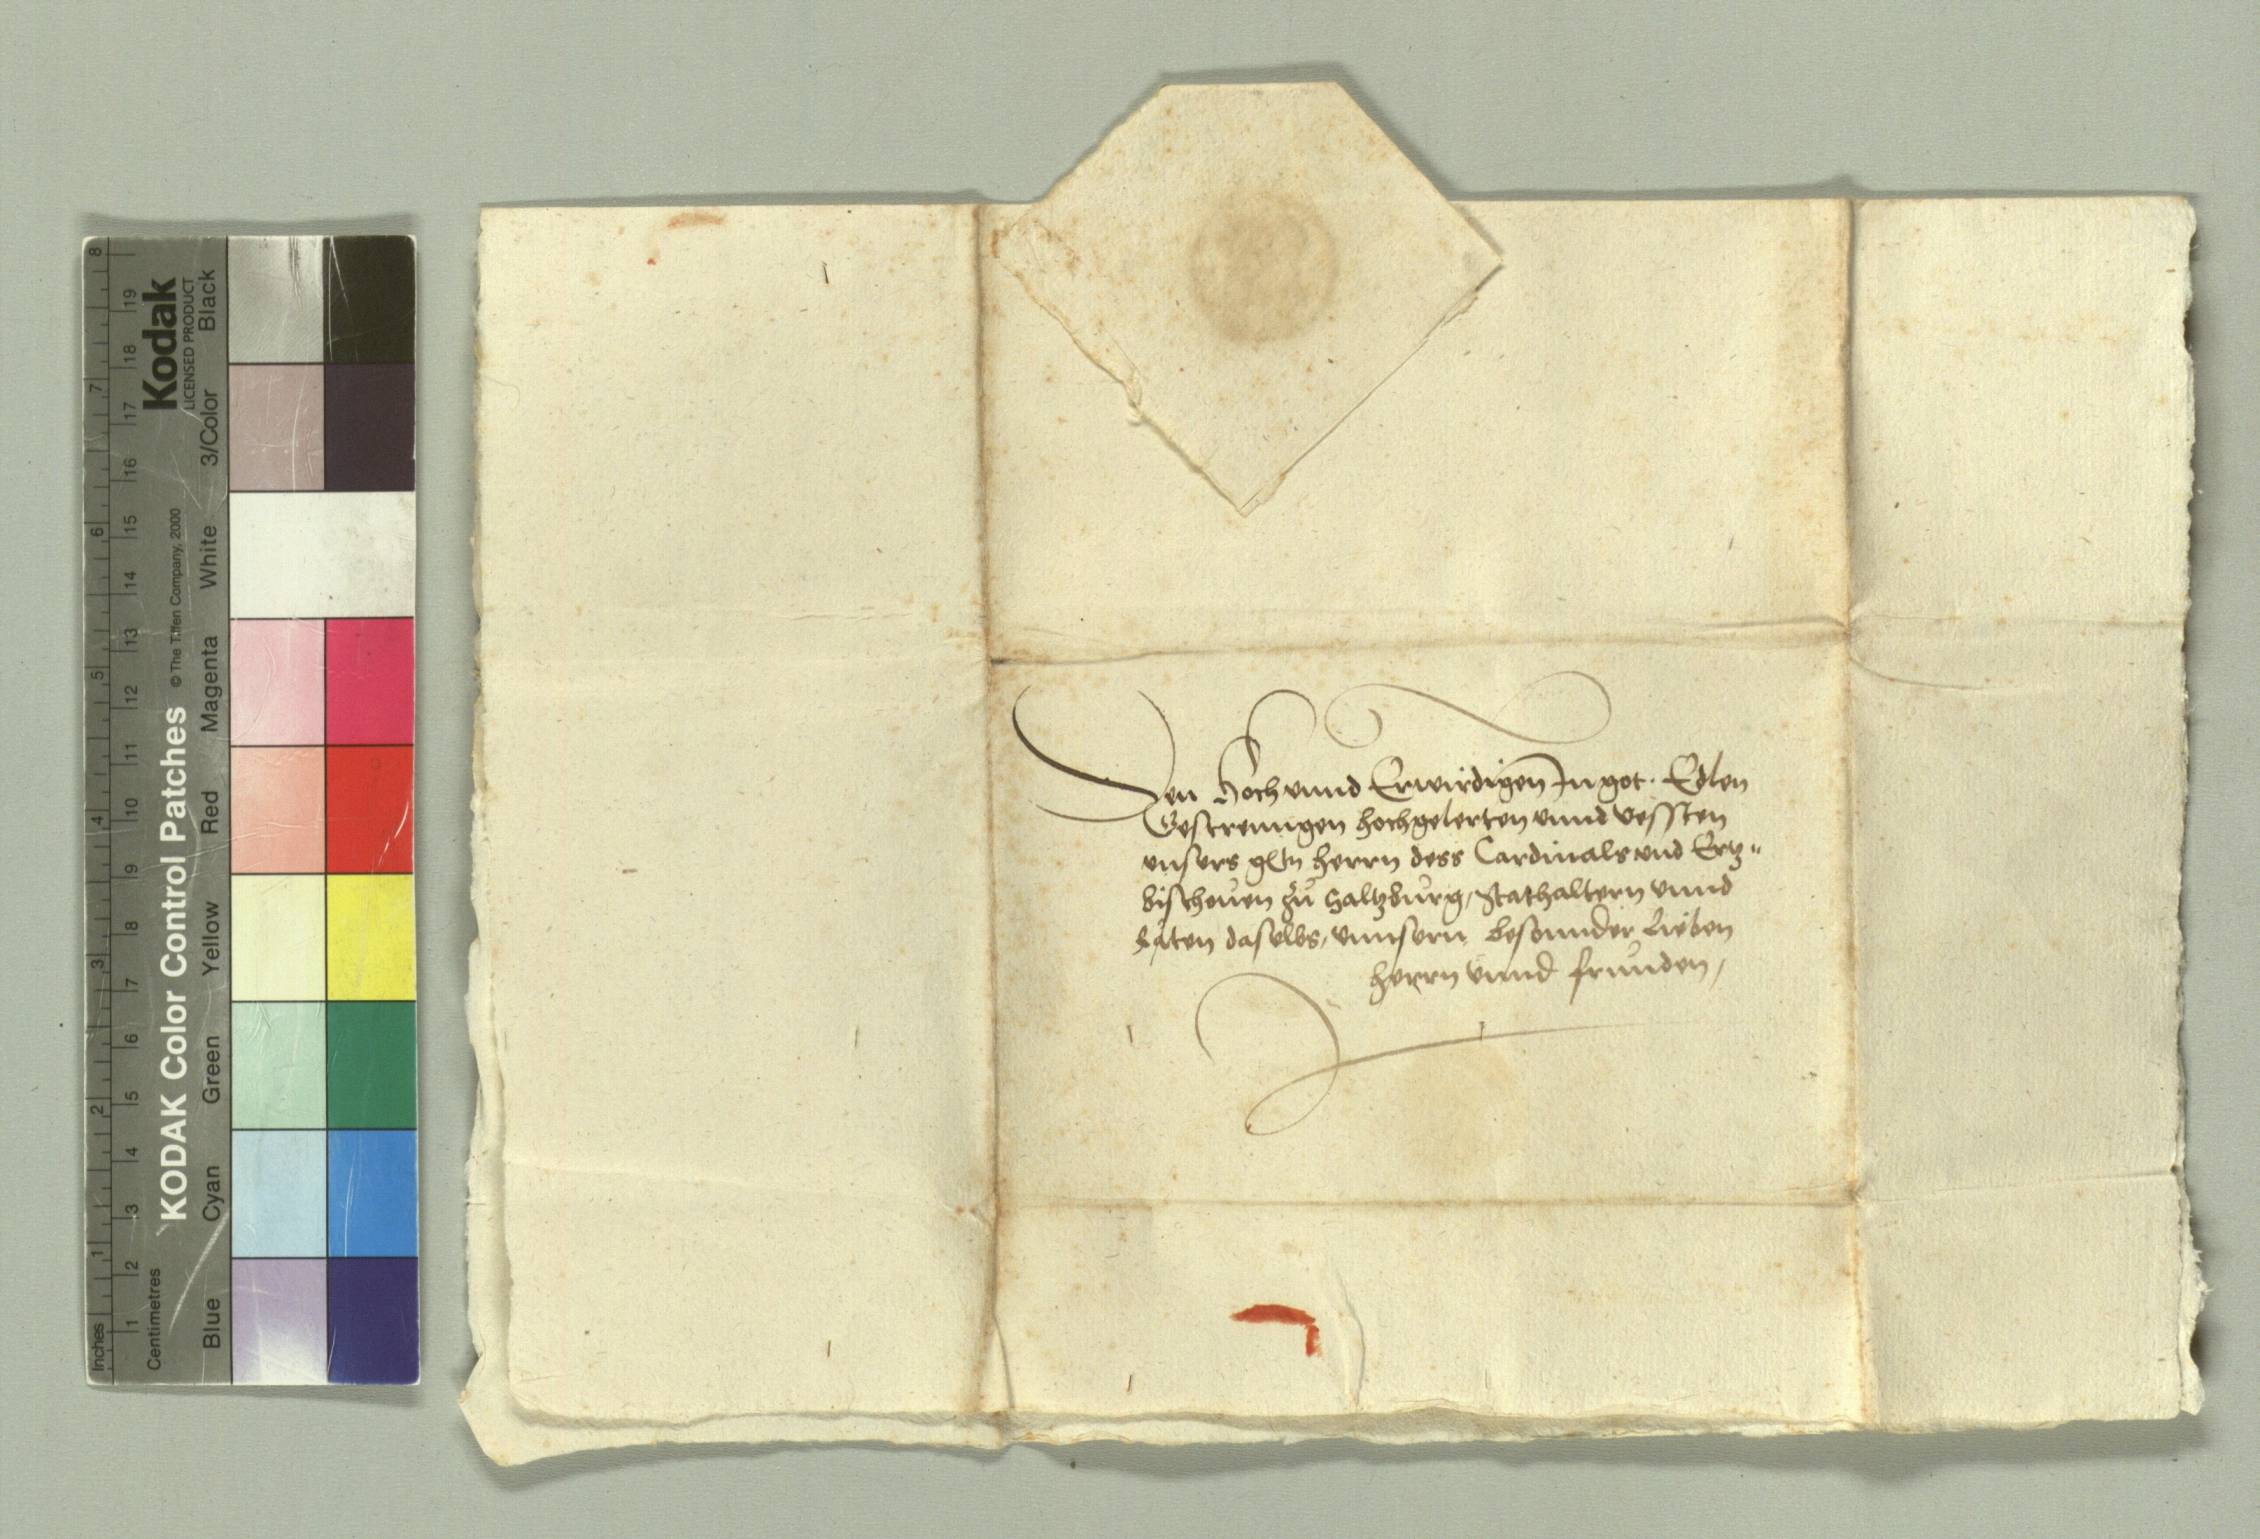 Den Hoch unnd Erwirdigen In got. Edlen
Gestrenngen hochgelerten unnd vessten
unsers gstn herrn dess Cardinals und Ertz=
bischeven zů Saltzburg, Stathaltern unnd
Räten daselbs, unnsern besonnder lieben
herrn unnd frunden,
KODAK Color Control Patches © The Tiffen Company, 2000
Kodak
LICENSED PRODUCT
Blue Cyan Green Yellow Red Magenta White 3/Color Black
Inches 1 2 3 4 5 6 7 8
Centimetres 1 2 3 4 5 6 7 8 9 10 11 12 13 14 15 16 17 18 19